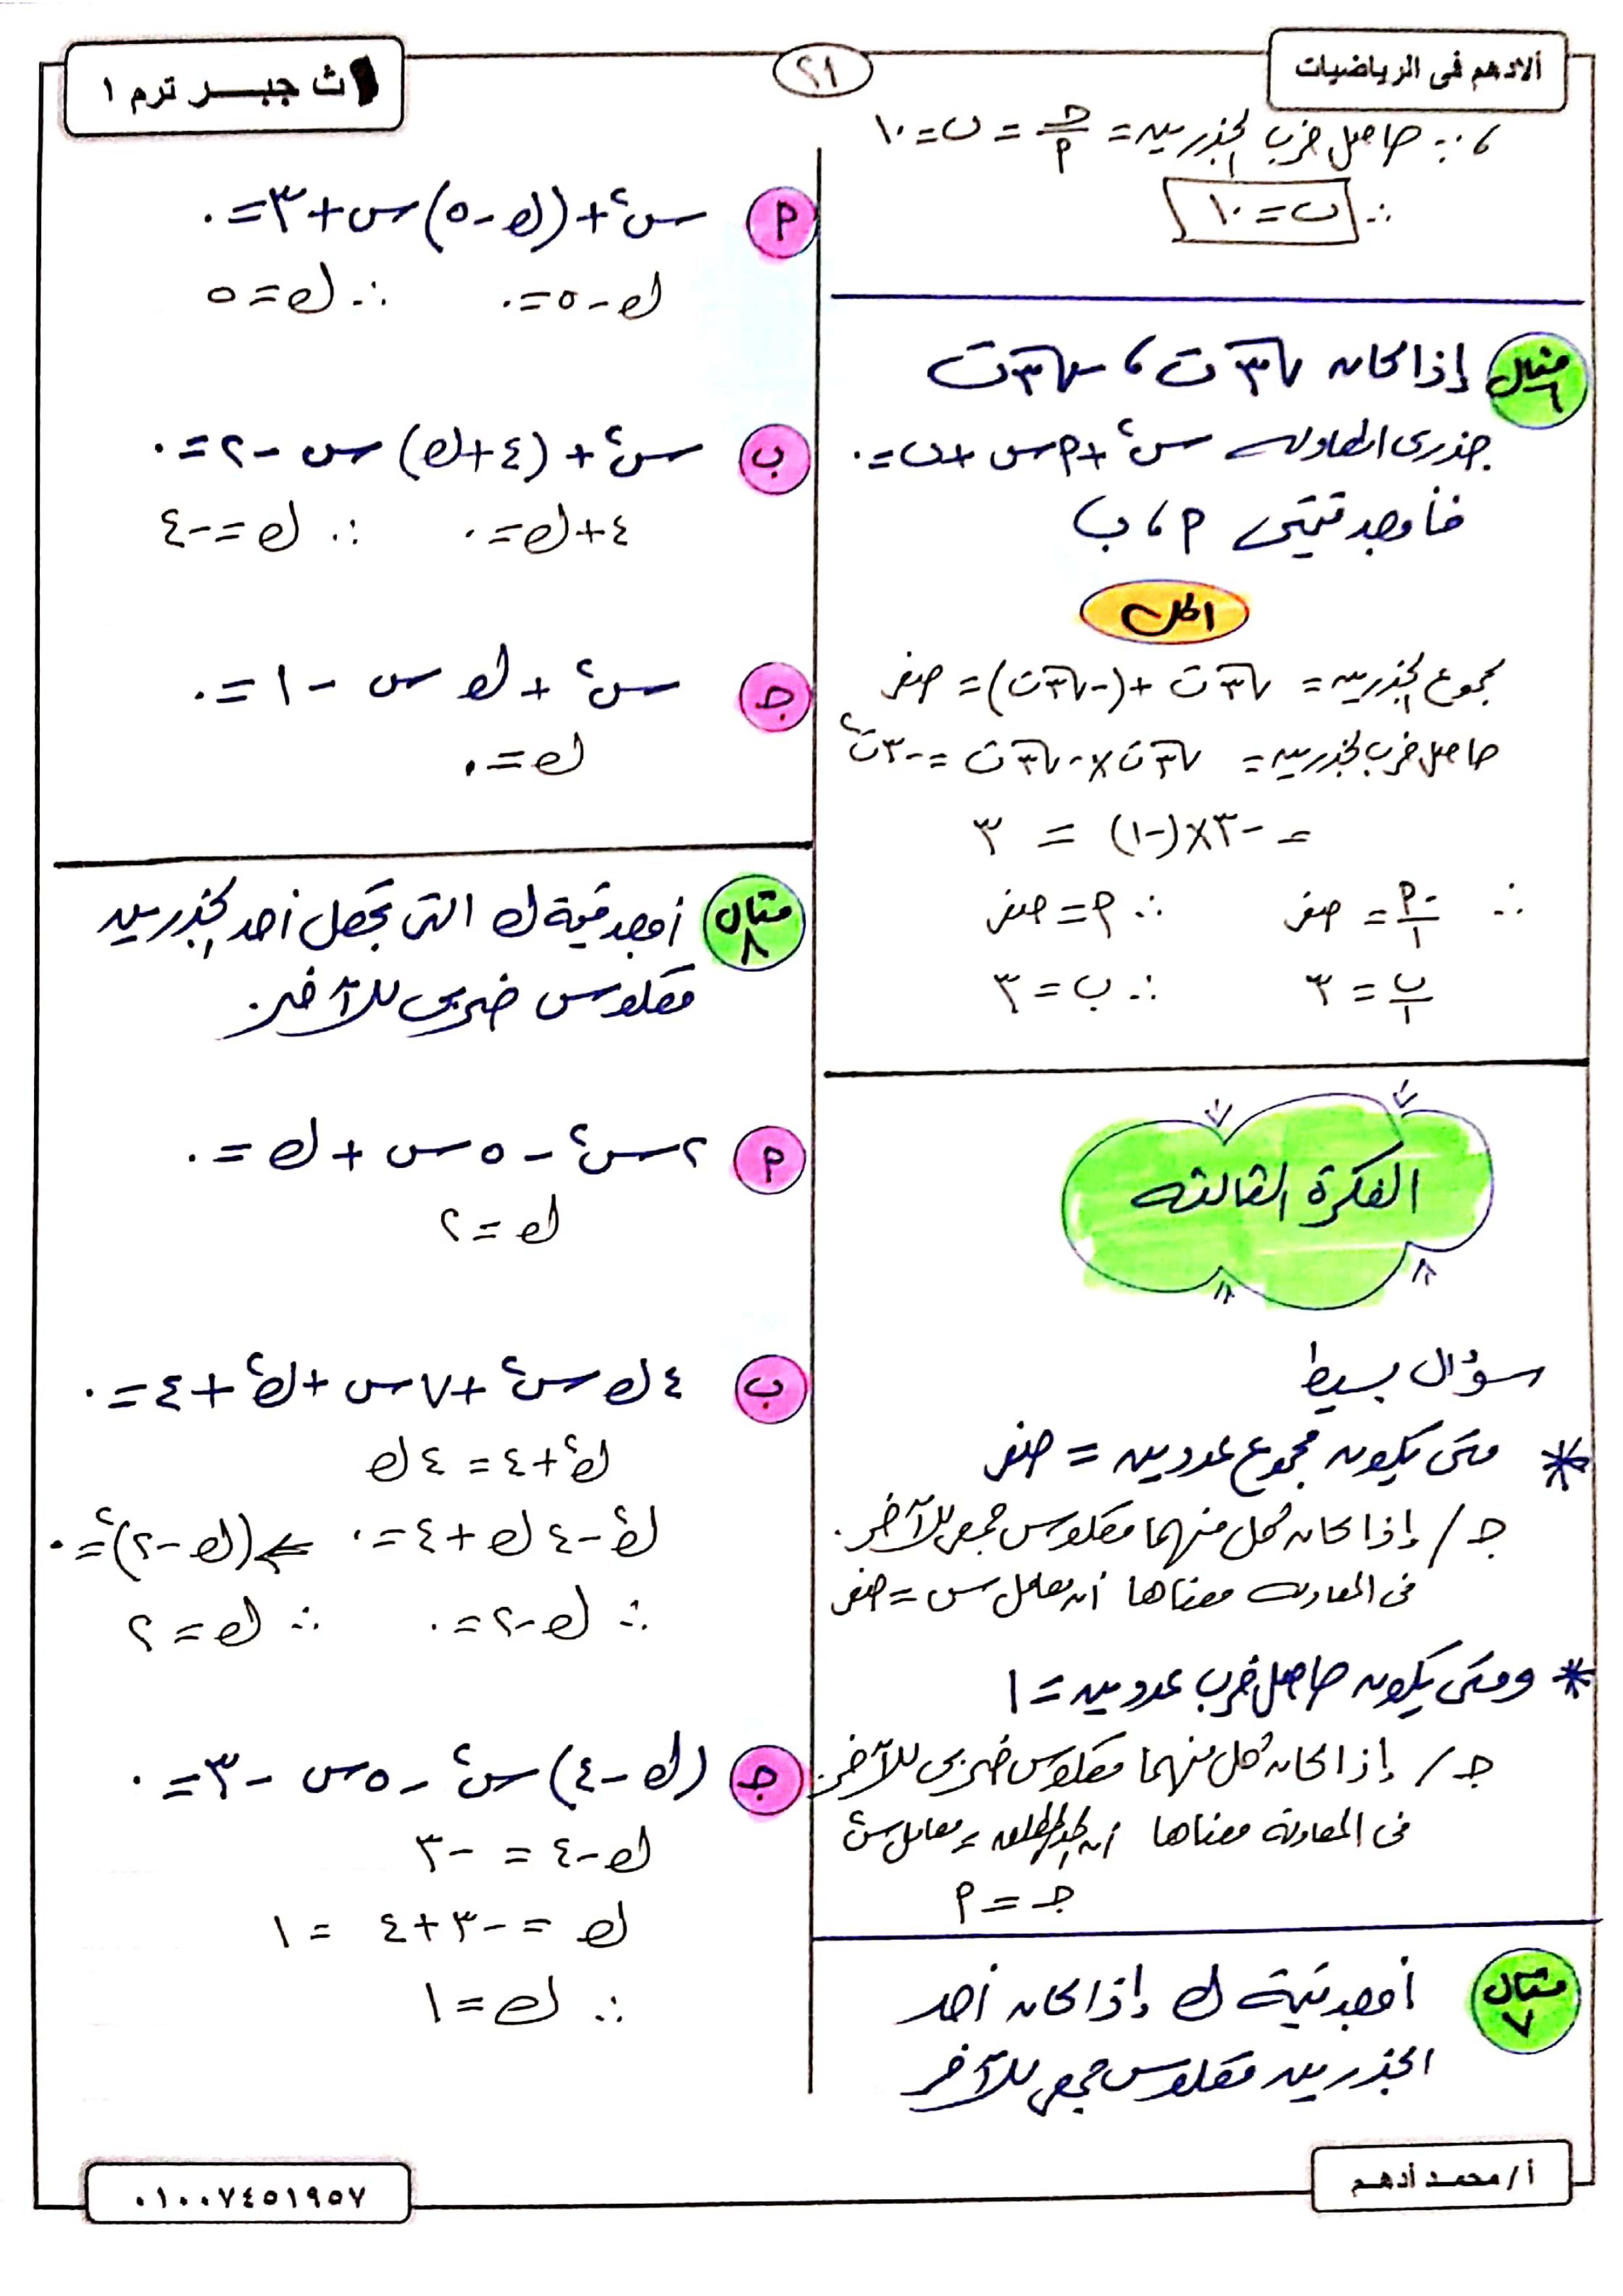 ألادهم فى الرياضيات
٢١
١ث جبـــر ترم ١
، ∵ حاصل ضرب الجذرين = جـ/أ = ب = ١٠
∴ ب = ١٠
مثال ٦
إذا كان √٣ ت ، -√٣ ت
جذرى المعادلة س² + أ س + ب = ٠
فأوجد قيمتى أ ، ب
الحل
مجموع الجذرين = √٣ ت + (-√٣ ت) = صفر
حاصل ضرب الجذرين = √٣ ت × -√٣ ت = -٣ ت²
= -٣ × (-١) = ٣
∴ -أ/١ = صفر ∴ أ = صفر
ب/١ = ٣ ∴ ب = ٣
الفكرة الثالثة
سؤال بسيط
* متى يكون مجموع عددين = صفر
جـ / إذا كان كل منهما معكوس جمعى للآخر.
فى المعادلة معناها أن معامل س = صفر
* ومتى يكون حاصل ضرب عددين = ١
جـ / إذا كان كل منهما معكوس ضربى للآخر.
فى المعادلة معناها أن الحد المطلق = معامل س²
جـ = أ
مثال ٧
أوجد قيمة ك إذا كان أحد
الجذرين معكوس جمعى للآخر
أ س² + (ك - ٥) س + ٣ = ٠
ك - ٥ = ٠ ∴ ك = ٥
ب س² + (٤ + ك) س - ٢ = ٠
٤ + ك = ٠ ∴ ك = -٤
جـ س² + ك س - ١ = ٠
ك = ٠
مثال ٨
أوجد قيمة ك التى تجعل أحد الجذرين
معكوس ضربى للآخر.
أ ٢ س² - ٥ س + ك = ٠
ك = ٢
ب ٤ ك س² + ٧ س + ك² + ٤ = ٠
ك² + ٤ = ٤ ك
ك² - ٤ ك + ٤ = ٠ ⇐ (ك - ٢)² = ٠
∴ ك - ٢ = ٠ ∴ ك = ٢
جـ (ك - ٤) س² - ٥ س - ٣ = ٠
ك - ٤ = -٣
ك = -٣ + ٤ = ١
∴ ك = ١
أ / محمـد أدهـم
٠١٠٠٧٤٥١٩٥٧